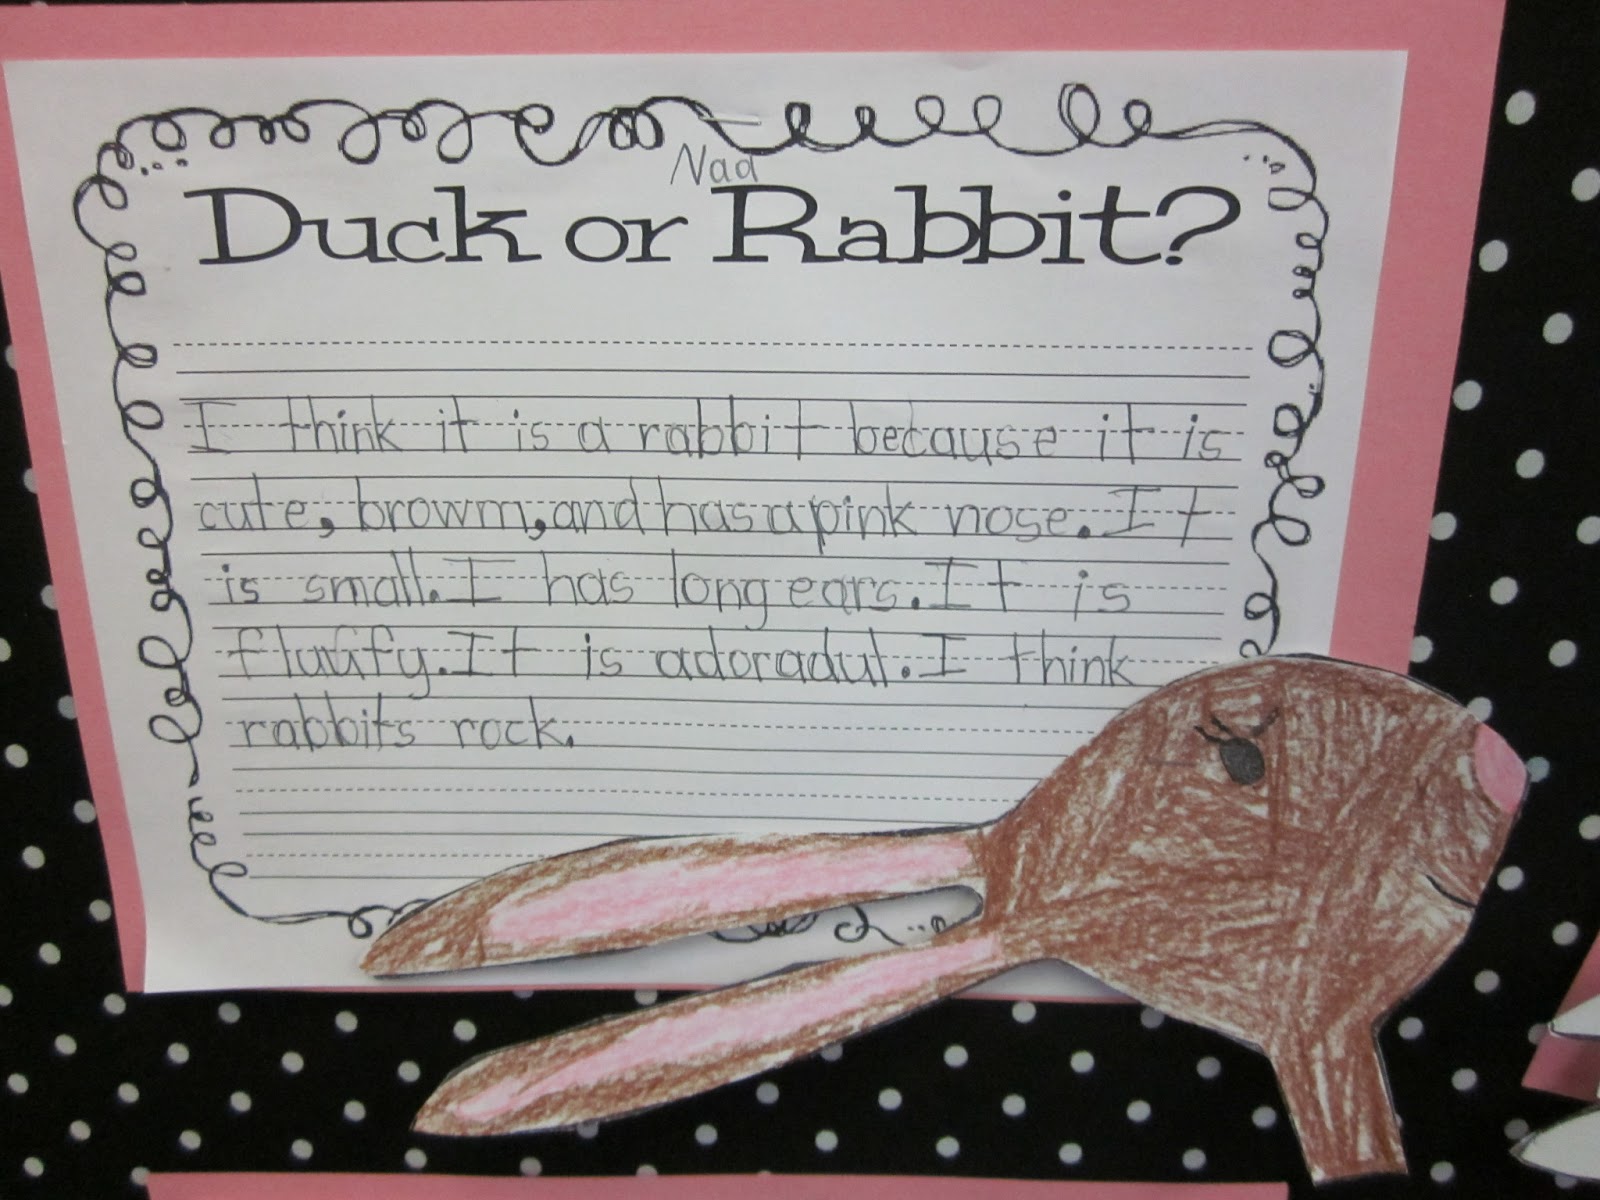 Nad
Duck or Rabbit?
I think it is a rabbit because it is
cute, browm, and has a pink nose. It
is small. I has long ears. It is
fluffy. It is adoradul. I think
rabbits rock.